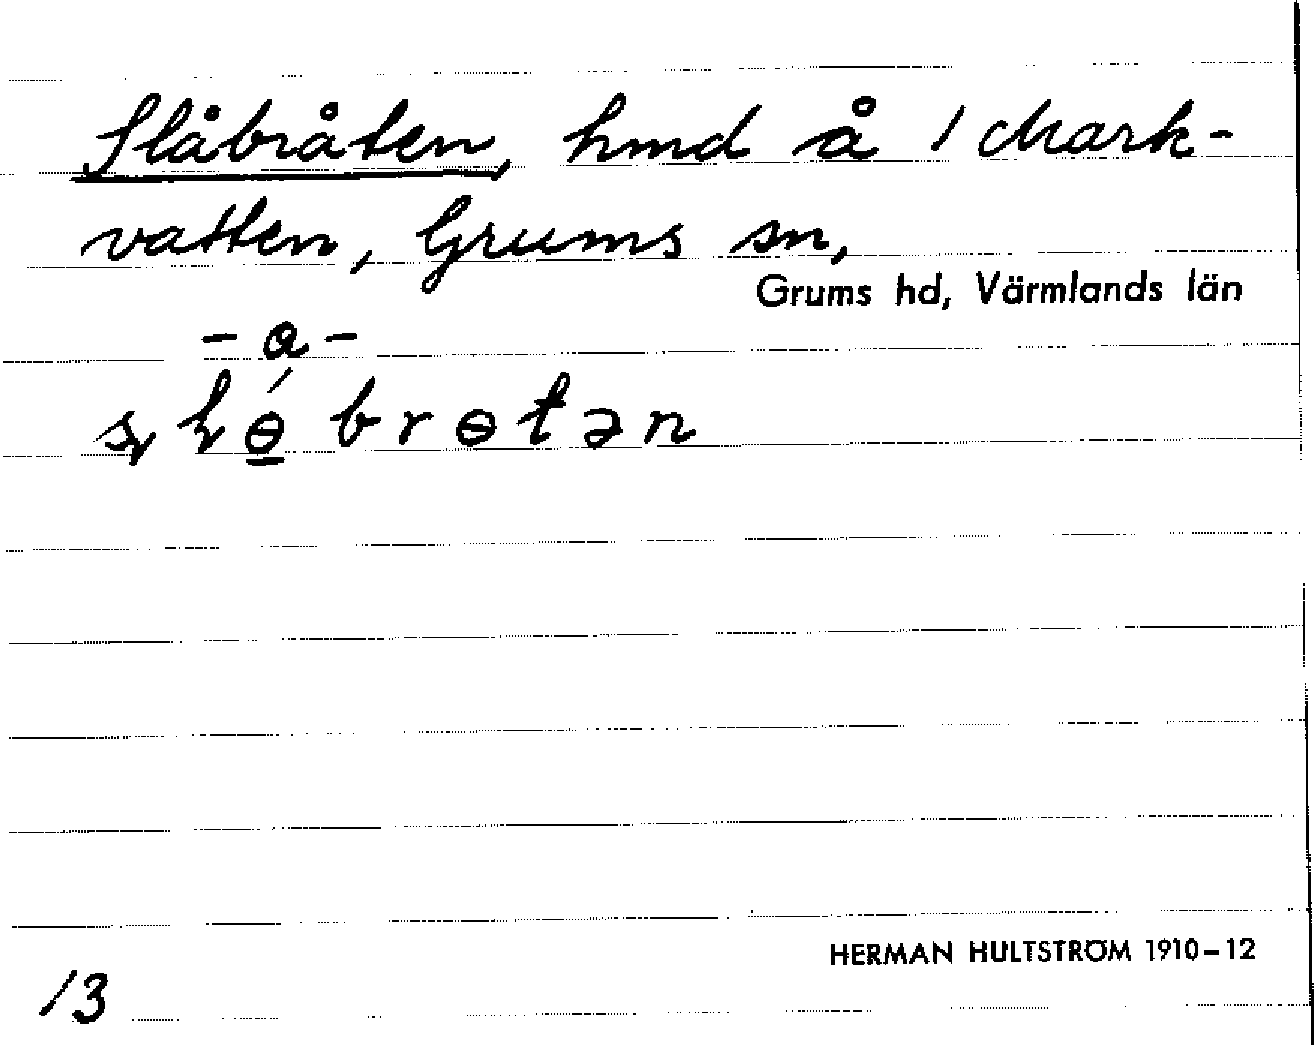 Slåbråten, hmd å 1 Mark-
vatten, Grums sn,
Grums hd, Värmlands län
- a -
HERMAN HULTSTRÖM 1910-12
13